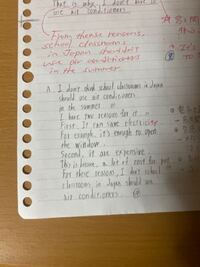 That is why, I don't have to
use air conditioners.
From theese reasons,
school classrooms
in Japan shouldn't
use air conditioners
in the summer.
A. I don't think school classrooms in Japan
should use air conditioners
in the summer.
I have two reasons for it.
First, It can save electricity
For example, it's enough to open
the window.
Second, it are expensive.
This is because, a lot of cost for put
For these reasons, I don't school
classrooms in Japan should use
air conditioners.